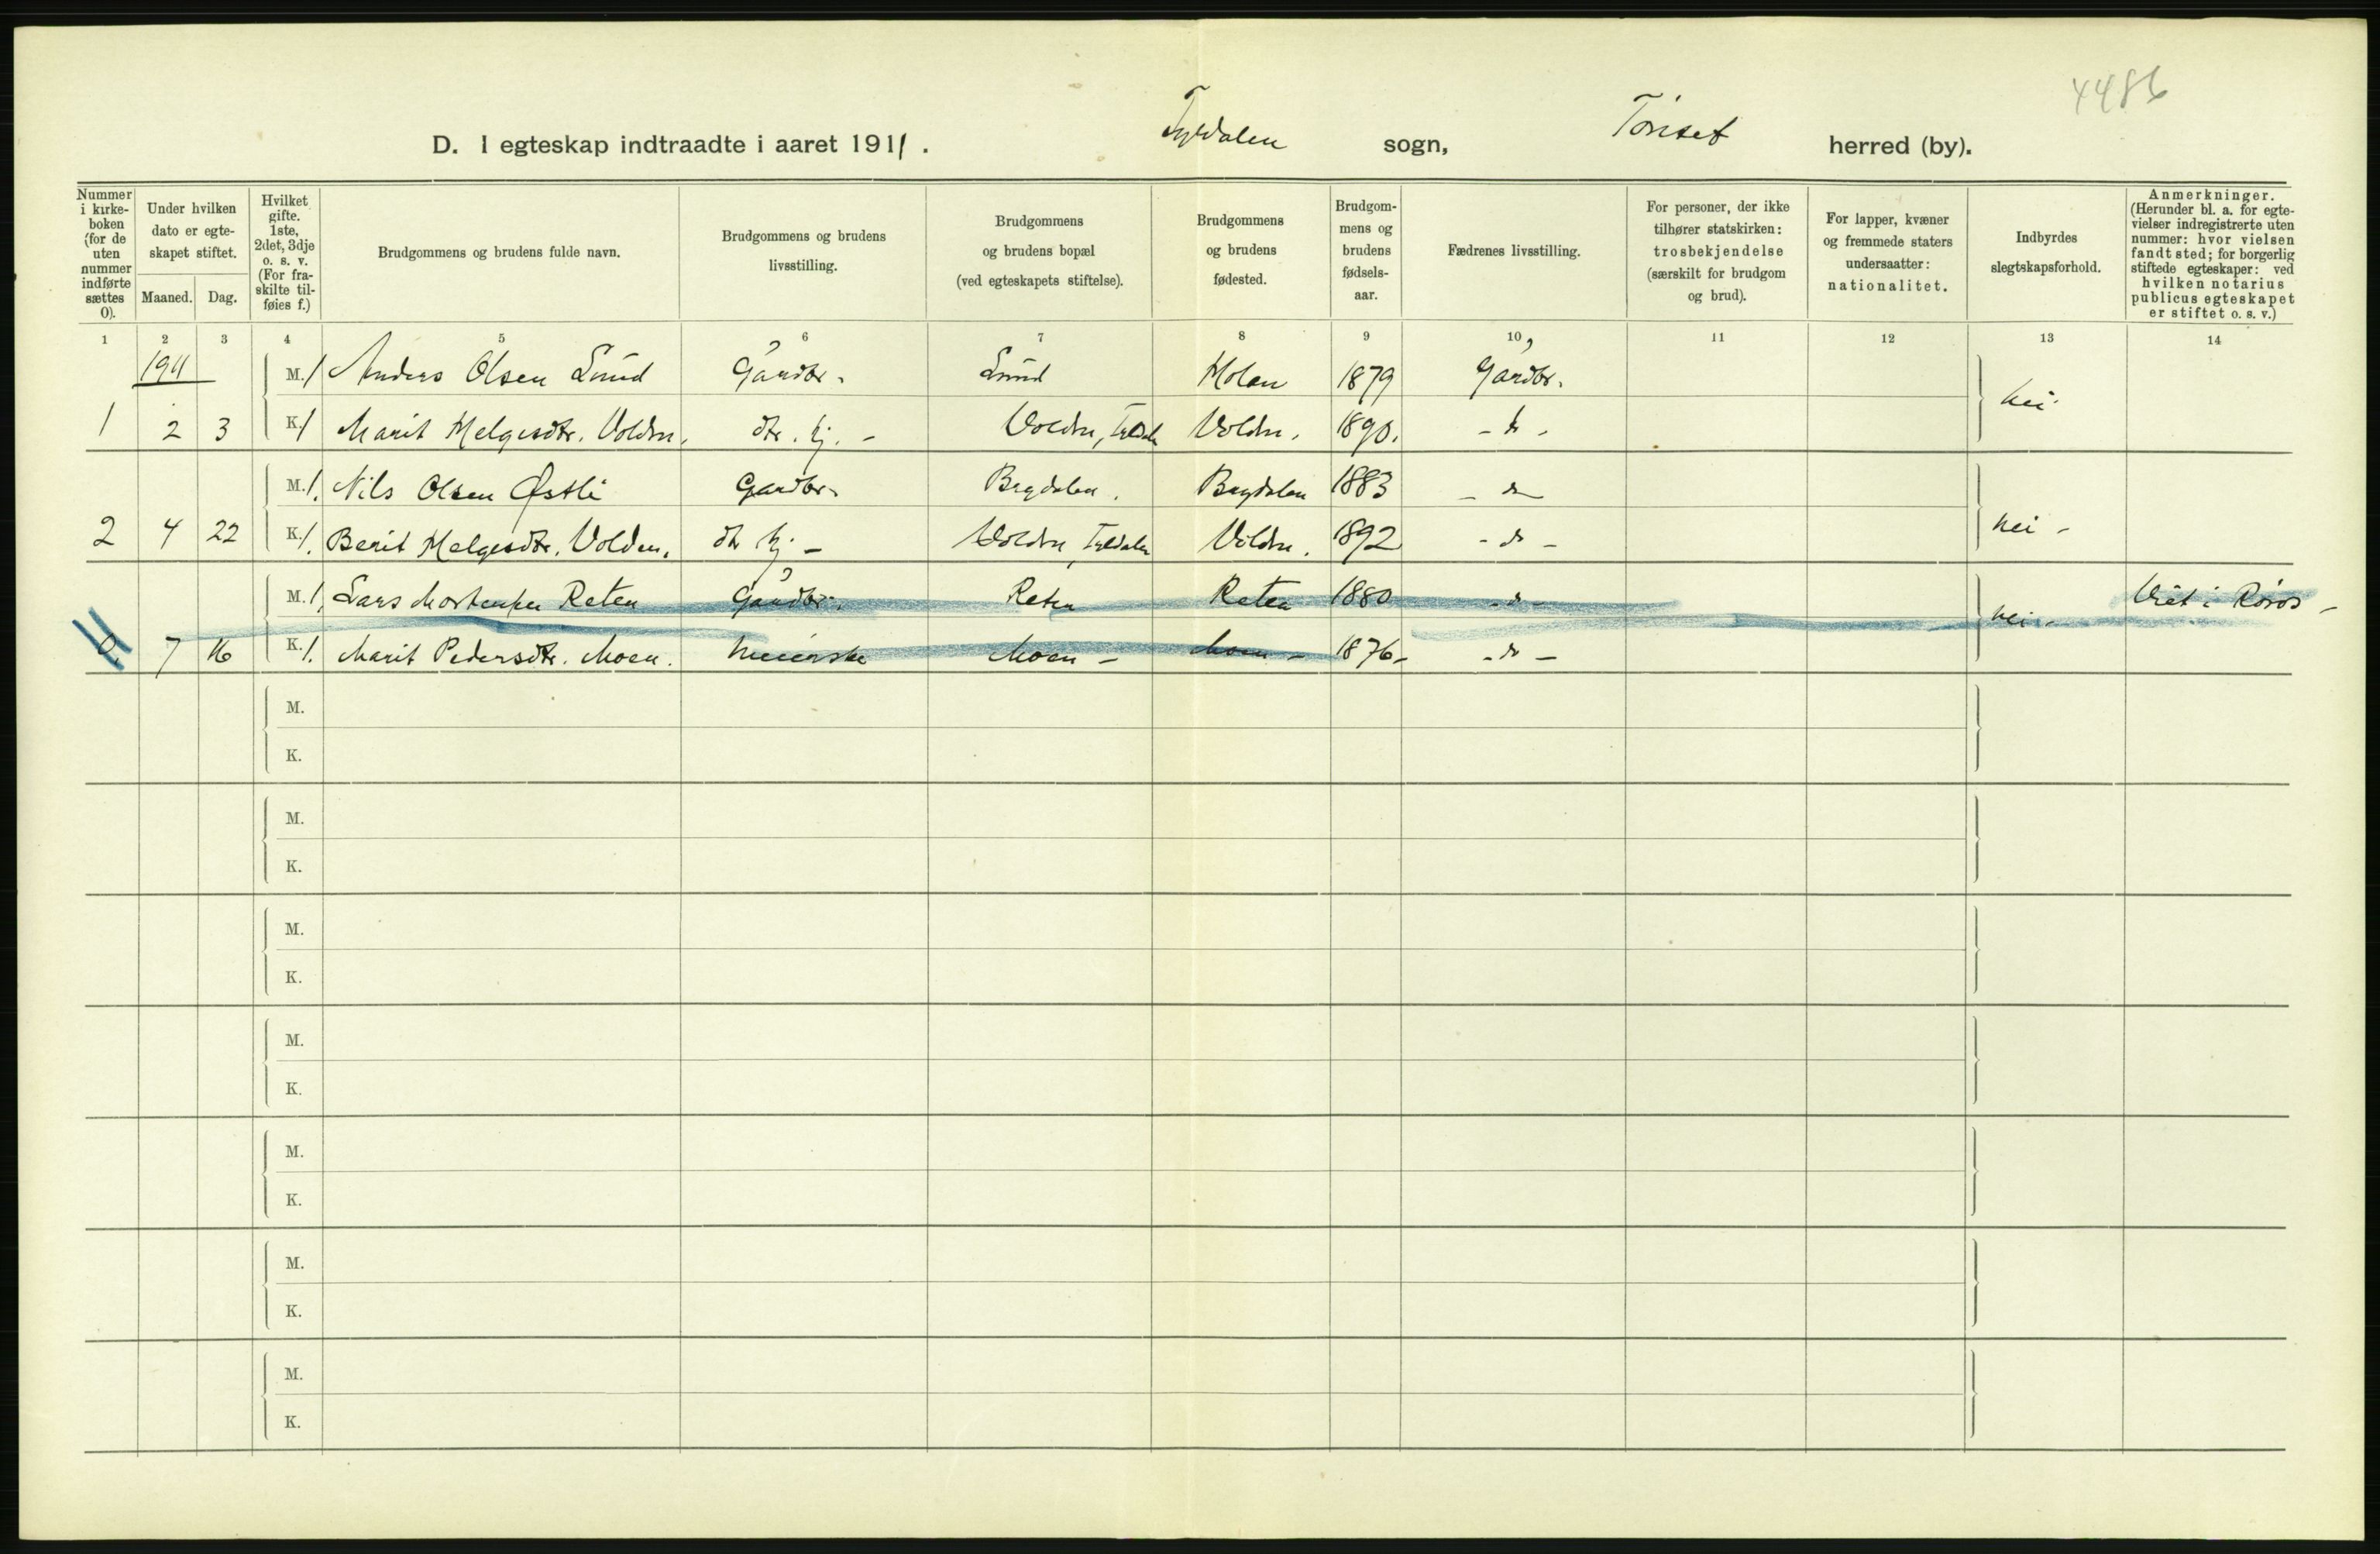 4486
D. I egteskap indtraadte i aaret 1911. Tyldalen sogn, Tønset herred (by).
Nummer i kirke-boken (for de uten nummer indførte sættes 0).
Under hvilken dato er egte-skapet stiftet.
Maaned. Dag.
Hvilket gifte. 1ste, 2det, 3dje o. s. v. (For fra-skilte til-føies f.)
Brudgommens og brudens fulde navn.
Brudgommens og brudens livsstilling.
Brudgommens og brudens bopæl (ved egteskapets stiftelse).
Brudgommens og brudens fødested.
Brudgom-mens og brudens fødsels-aar.
Fædrenes livsstilling.
For personer, der ikke tilhører statskirken: trosbekjendelse (særskilt for brudgom og brud).
For lapper, kvæner og fremmede staters undersaatter: nationalitet.
Indbyrdes slegtskapsforhold.
Anmerkninger. (Herunder bl. a. for egte-vielser indregistrerte uten nummer: hvor vielsen fandt sted; for borgerlig stiftede egteskaper: ved hvilken notarius publicus egteskapet er stiftet o. s. v.)
1 2 3 4 5 6 7 8 9 10 11 12 13 14
1911 M. 1 Anders Olsen Lund Gaardbr. Lund Molan 1879 Gaardbr.
nei.
1 2 3 K. 1 Marit Helgesdtr. Volden. dtr. hj. - Volden, Tyldalen Volden. 1890. - do -
M. 1. Nils Olsen Østli Gaardbr. Brydalen. Brydalen 1883 - do -
nei -
2 4 22 K. 1. Berit Helgesdtr. Volden. dtr hj - Volden, Tyldalen Volden. 1892 - do -
M. 1. Lars Mortensen Røten Gaardbr. Røten Røten 1880 - do - Viet i Røros -
nei -
0. 7 16 K. 1. Marit Pedersdtr. Moen. Meierske Moen - Moen - 1876 - - do -
M.
K.
M.
K.
M.
K.
M.
K.
M.
K.
M.
K.
M.
K.